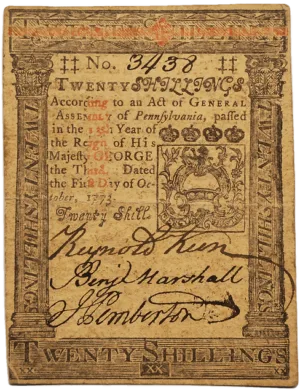 No. 3438
TWENTY SHILLINGS.
According to an Act of GENERAL
ASSEMBLY of Pennsylvania, passed
in the 13th Year of
the Reign of His
Majesty GEORGE
the Third. Dated
the First Day of Oc-
tober, 1773.
Twenty Shill.
Reynold Keen
Benj. Marshall
J. Pemberton
TWENTY SHILLINGS
TWENTY SHILLINGS
TWENTY SHILLINGS
XX XX